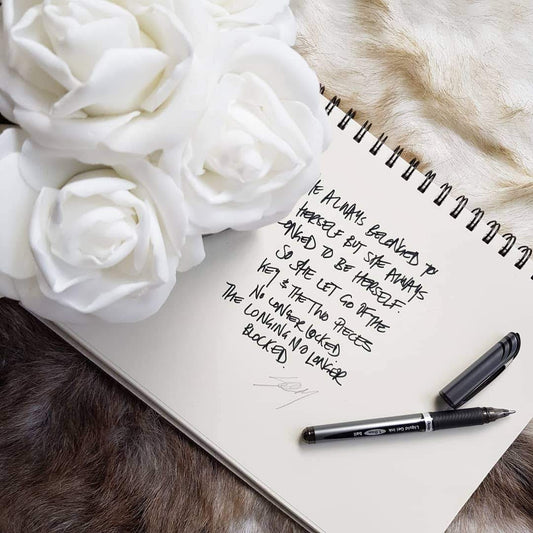 E ALWAYS BELONGED TO
HERSELF BUT SHE ALWAYS
ONGED TO BE HERSELF.
SO SHE LET GO OF THE
KEY & THE TWO PIECES
NO LONGER LOCKED,
THE LONGING NO LONGER
BLOCKED.
Liquid Gel Ink